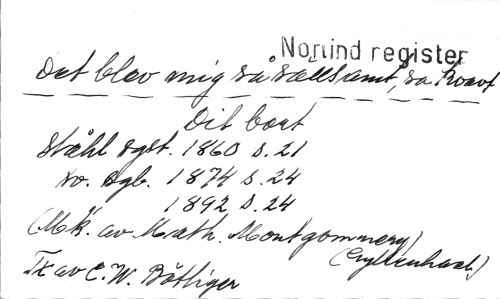 Norlind register
Det blev mig så sällsamt, så kvavt
Dit bort
Ståhl sgst. 1860 s. 21
so. sgb. 1874 s. 24
1892 s. 24
(Mk. av Math. Montgommery)
(Gyllenhaal)
Tx av C. W. Böttiger